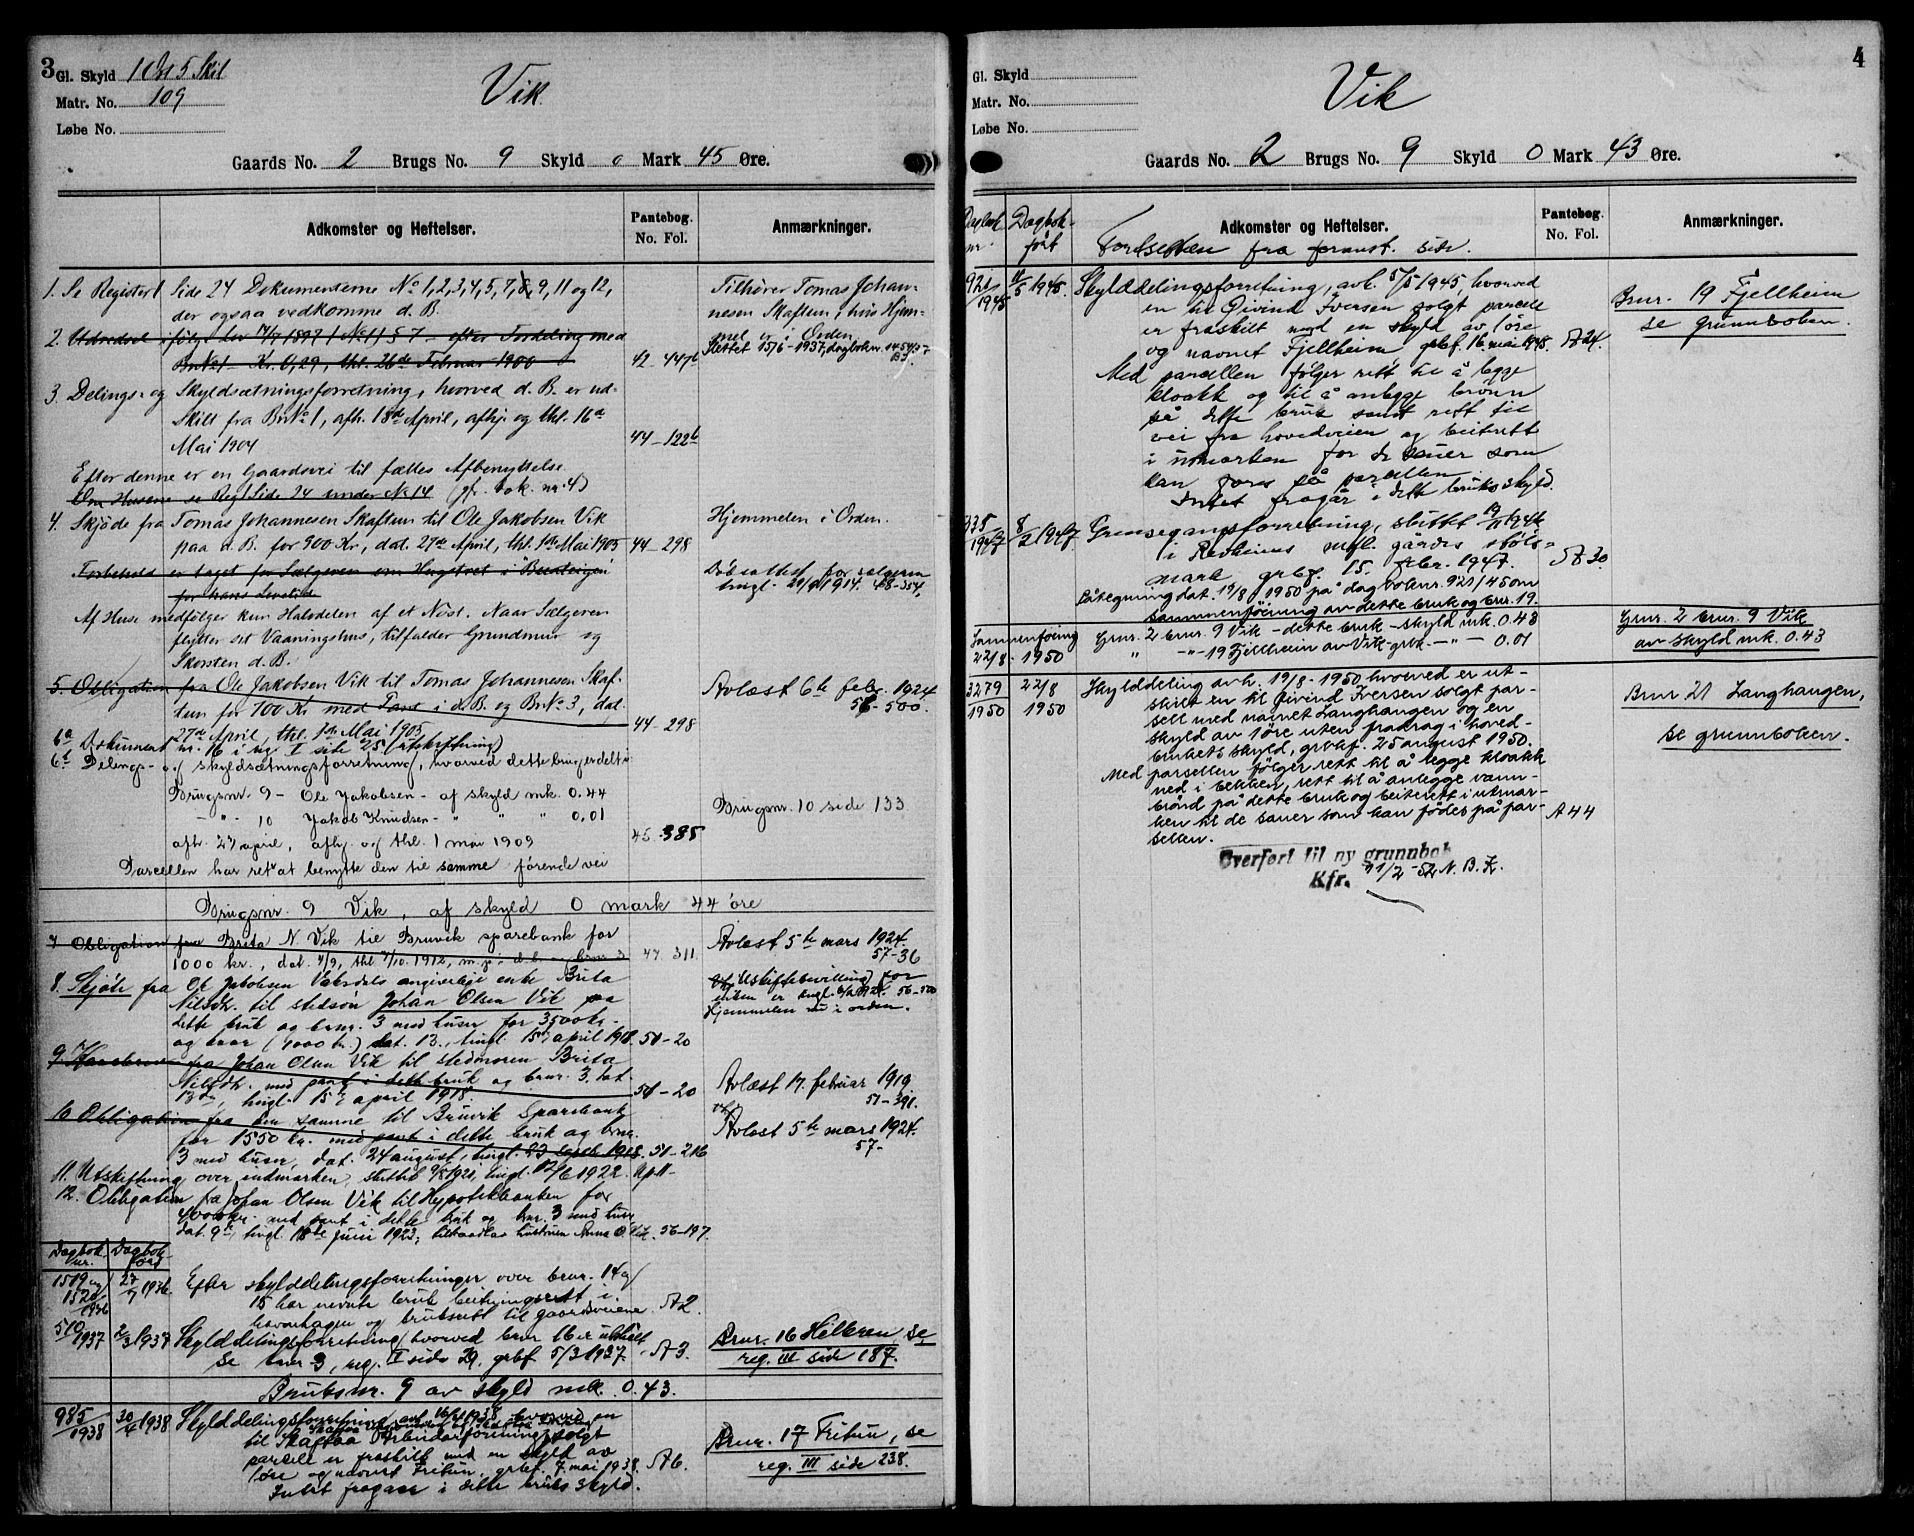 3
Gl. Skyld 1 Ort 5 Skil
Matr. No. 109
Løbe No.
Vik.
Gaards No. 2 Brugs No. 9 Skyld 0 Mark 45 Øre.
Adkomster og Heftelser.
Pantebog.
No. Fol.
Anmærkninger.
1. Se Register I Side 24 Dokumenterne No 1, 2, 3, 4, 5, 7, 8, 9, 11 og 12,
der ogsaa vedkomme d. B.
Tilhører Tomas Johan-
nesen Skaftun, hvis Hjem-
mel er i Orden
2. Udredsel ifølge Lov 17/7 1897 No 11 § 7 - efter Fordeling med
BrNo 1 Kr. 0,29, thl. 26de Februar 1900
42 - 447b
Slettet 15/6-1937, dagboknr. 1454/37
3. Delings- og Skyldsætningsforretning, hvorved d. B. er ud-
skilt fra BrNo 1, afh. 18de April, afhj. og thl. 16de
Mai 1904
44 - 122b
Efter denne er en Gaardsvei til fælles Afbenyttelse.
Om Husene se Reg I Side 24 under No 14 (jfr. dok. nr. 4)
4. Skjøde fra Tomas Johannesen Skaftun til Ole Jakobsen Vik
paa d. B. for 900 Kr., dat. 27de April, thl. 1ste Mai 1905
44 - 298
Hjemmelen i Orden.
Forbehold er taget for Sælgeren om Husstvet i Bendeigen
for hans Levetid
Dødsattest for selgeren
tingl. 29/9 1914. 48-354.
Af Huse medfølger kun Halvdelen af et Nøst. Naar Sælgeren
flytter sit Vaaningshus, tilfalder Grundmur og
Skorsten d. B.
5. Obligation fra Ole Jakobsen Vik til Tomas Johannesen Skaf-
tun for 700 Kr. med Pant i d. B. og BrNo 3, dat.
27de April, thl. 1ste Mai 1905
44 - 298
Avlæst 6te febr. 1924
56-500.
6a Dokument nr. 16 i reg. I side 25 (utskiftning)
6b Delings- og skyldsætningsforretning, hvorved dette brug er delt i:
Brugsnr. 9 - Ole Jakobsen - af skyld mk. 0.44
- " - 10 Jakob Knudsen - " " " 0,01
afh. 27 april, afhj. og thl. 1 mai 1909
45 - 385
Brugsnr. 10 side 133
Parcellen har ret at benytte den til samme førende vei
Brugsnr. 9 Vik, af skyld 0 mark 44 øre
7. Obligation fra Brita N. Vik til Bruvik sparebank for
1000 kr., dat. 4/9, thl 7/10. 1912, m. p. i d. b. og brnr. 3
47 311
Avlæst 5te mars 1924.
57-36
8. Skjøte fra Ole Jakobsen Vaksdals angivelige enke Brita
Nilsdtr. til stedsøn Johan Olsen Vik paa
dette bruk og brnr. 3 med huser for 3500 kr. -
og kaar (1000 kr.) dat. 13., tingl. 15de april 1918.
51-20
Uskiftebevilling for
enken er tingl. 6/2 1924. 56-500
Hjemmelen nu i orden.
9. Kaarbrev fra Johan Olsen Vik til stedmoren Brita
Nilsdtr. med pant i dette bruk og brnr. 3. dat.
13de, tingl. 15de april 1918.
51-20
Avlæst 17. februar 1919
51-391.
10 Obligation fra den samme til Bruvik Sparebank
for 1550 kr. med pant i dette bruk og brnr.
3 med huser, dat. 24 august, tingl. 23 septb. 1918.
51-216
Avlæst 5te mars 1924.
57-
11. Utskiftning over indmarken, sluttet 9/5 1921, tingl. 12/6 1922.
12. Obligation fra Johan Olsen Vik til Hypotekbanken for
4000 kr. med pant i dette bruk og brnr. 3 med huser
dat. 9de, tingl. 18de juni 1923, tiltraadt av hustruen Anna O. Vik.
56-197.
Dagbok
nr.
Dagbok-
ført
1519 og
1520
1936
27/7 1936.
Efter skylddelingsforretninger over brnr. 14 og
15 har nevnte bruk beitningsrett i
havnehagen og bruksrett til gaardsveiene.
A2.
510/1937
2/3 1937
Skylddelingsforretning hvorved brnr 16 er utskilt
se brnr 3, reg. I side 29. grbf. 5/3 1937.
A3.
Brnr. 16 Hilleren, se
reg. III side 187.
Bruksnr. 9 av skyld mk. 0.43.
985/1938
30/4 1938
Skylddelingsforretning avh 16/4 1938, hvorved en
til Skaftaa Arbeiderforening solgt
parsell er fraskilt med en skyld av
1 øre og navnet Fritun. grbf. 7 mai 1938.
Intet fragaar i dette bruks skyld.
A6.
Brnr. 17 Fritun, se
reg. III side 238.
4
Gl. Skyld
Matr. No.
Løbe No.
Vik
Gaards No. 2 Brugs No. 9 Skyld 0 Mark 43 Øre.
Dagbok
nr.
Dagbok-
ført
Adkomster og Heftelser.
Fortsettes fra foranst. side.
Pantebog.
No. Fol.
Anmærkninger.
921/1945
11/5 1945.
Skylddelingsforretning, avh. 5/5 1945, hvorved
en til Øivind Iversen solgt parsell
er fraskilt med en skyld av 1 øre
og navnet Fjellheim, grbf. 16. mai 1945.
A24.
Brnr. 19 Fjellheim
se grunnboken.
Med parcellen følger rett til å legge
kloakk og til å anlegge brønn
på dette bruk samt rett til
vei fra hovedveien og beiterett
i utmarken for de sauer som
kan fores på parcellen.
Intet fragår i dette bruks skyld.
335/1947
8/2 1947.
Grensegangsforretning, sluttet 19/11 1946
i Redheims mfl. gårdes støls-
mark grbf. 15. febr. 1947.
A30.
Påtegning dat. 19/8 1950 på dagboknr. 921/45 om
sammenføining av dette bruk og bnr. 19.
Sammenføining
22/8-1950
Gnr. 2 bnr. 9 Vik - dette bruk - skyld mk. 0.43
" -"- 19 Fjellheim av Vik grbk -"- 0.01
Gnr. 2 bnr. 9 Vik
av skyld mk. 0.43
3279/1950
22/8 1950
Skylddeling avh. 19/8-1950 hvorved er ut-
skilt en til Øivind Iversen solgt par-
sell med navnet Langhaugen og en
skyld av 1 øre uten fradrag i hoved-
brukets skyld, grbkf. 25 august 1950.
Med parsellen følger rett til å legge kloakk
ned i bekken, rett til å anlegge vann-
brønd på dette bruk og beiterett i utmar-
ken til de sauer som kan fødes på par-
sellen.
A44
Bnr 21 Langhaugen,
se grunnboken.
Overført til ny grunnbok
Kfr. 21/2-52 N. B. K.